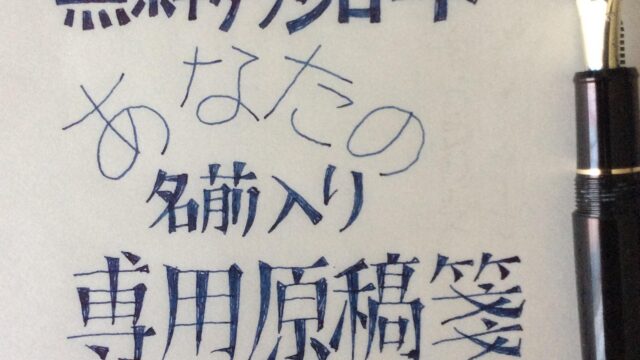 あなたの
名前入り
専用原稿箋